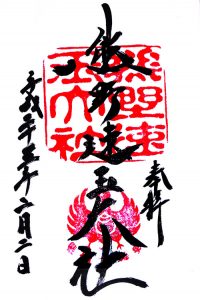 奉拝
熊野速玉大社
熊野速玉大社
平成二十五年二月二日